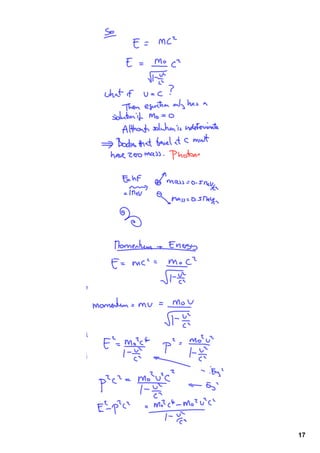 So
E = mc²
E = m₀ c²
√1-u²/c²
what if u = c ?
Then equation only has a
solution if m₀ = 0
Although solution is indeterminate
⇒ Bodies that travel at c must
have zero mass. Photon
E=hF
mass = 0.5 MeV/c²
= 1 MeV
mass = 0.5 MeV/c²
Momentum → Energy
E = mc² = m₀c²
√1-u²/c²
momentum = mu = m₀u
√1-u²/c²
E² = m₀²c⁴ p² = m₀²u²
1-u²/c² 1-u²/c²
p²c² = m₀²u²c²
1-u²/c²
E²-p²c² = m₀²c⁴-m₀²u²c²
1-u²/c²
17